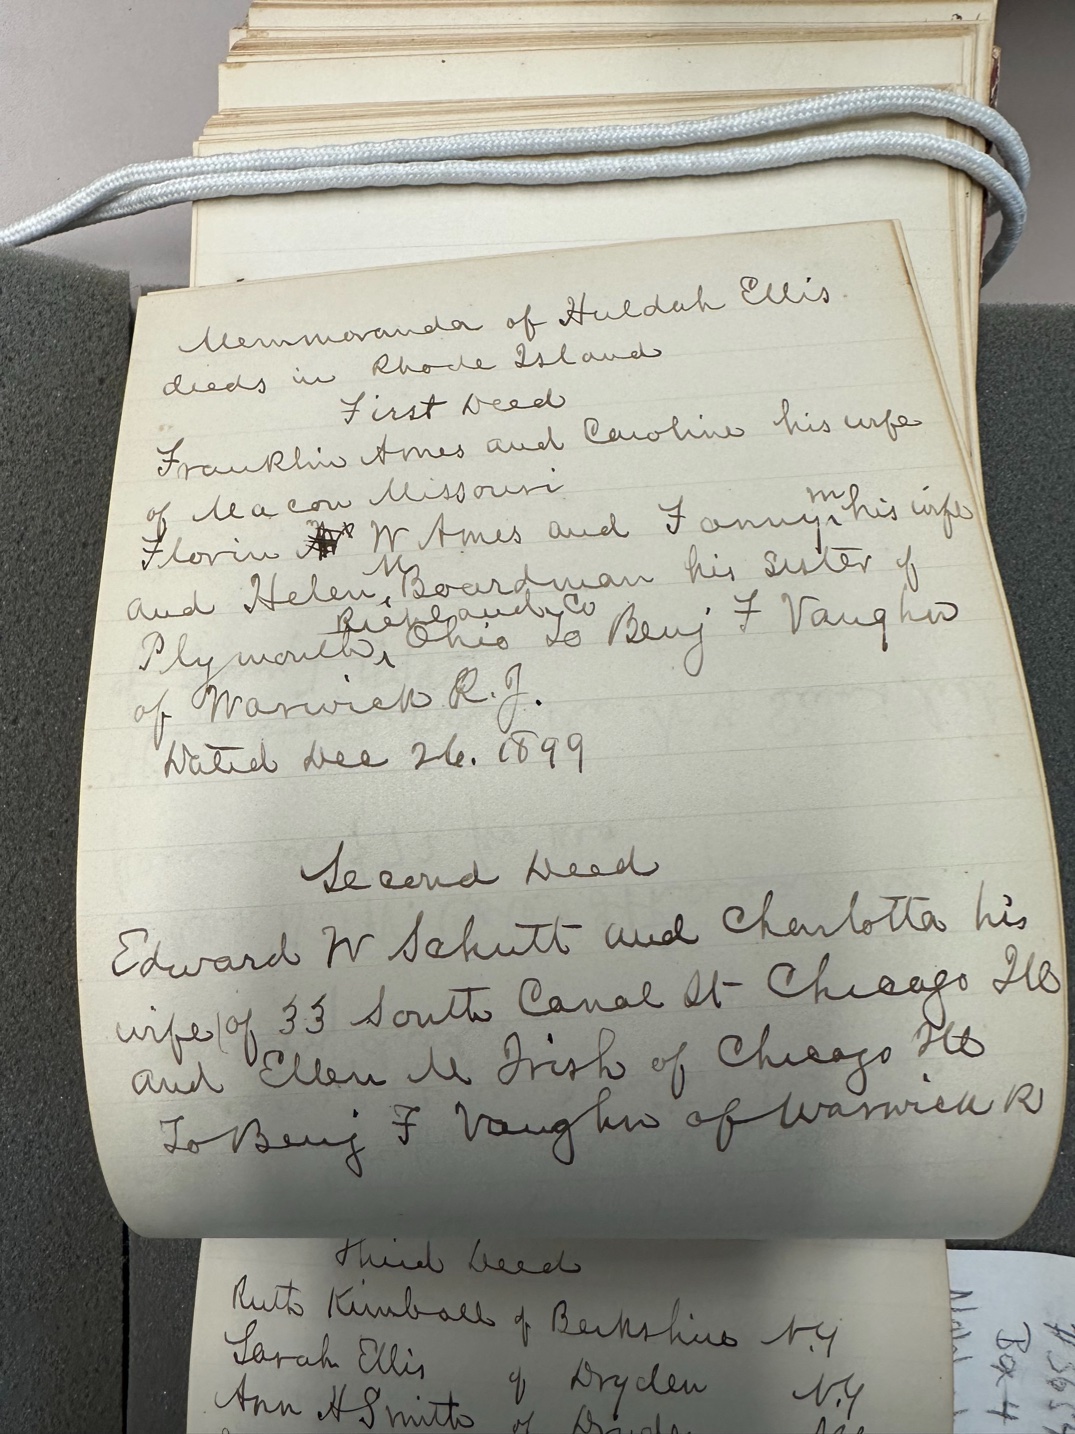 Memmoranda of Huldah Ellis
dieds in Rhode Island
First Deed
Franklin Ames and Caroline his wife
of Macon Missouri
Florin W Ames and Fanny M his wife
and Helen M Boardman his sister of
Plymouth, Richland Co Ohio to Benj F Vaughn
of Warwick R.I.
Dated Dec 26. 1899
Second Deed
Edward W Schutt and Charlotta his
wife of 33 South Canal St Chicago Ill
and Ellen M Irish of Chicago Ill
To Benj F Vaughn of Warwick R
Third Deed
Ruth Kimball of Berkshire N.Y
Sarah Ellis of Dryden N.Y
Ann H Smith of
Box 4